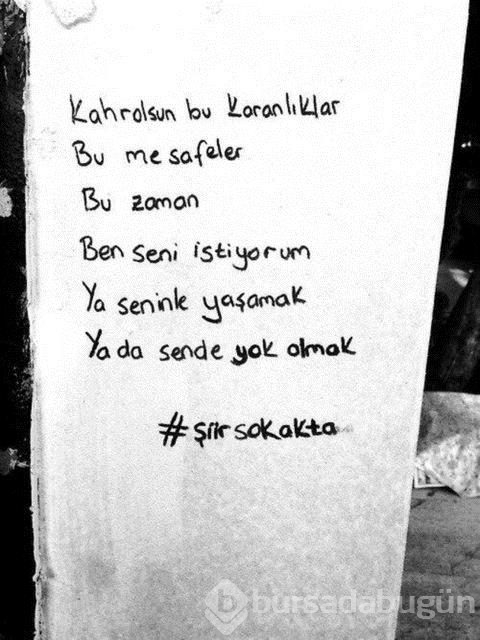 Kahrolsun bu karanlıklar
Bu mesafeler
Bu zaman
Ben seni istiyorum
Ya seninle yaşamak
Ya da sende yok olmak
#şiirsokakta
bursadabugün